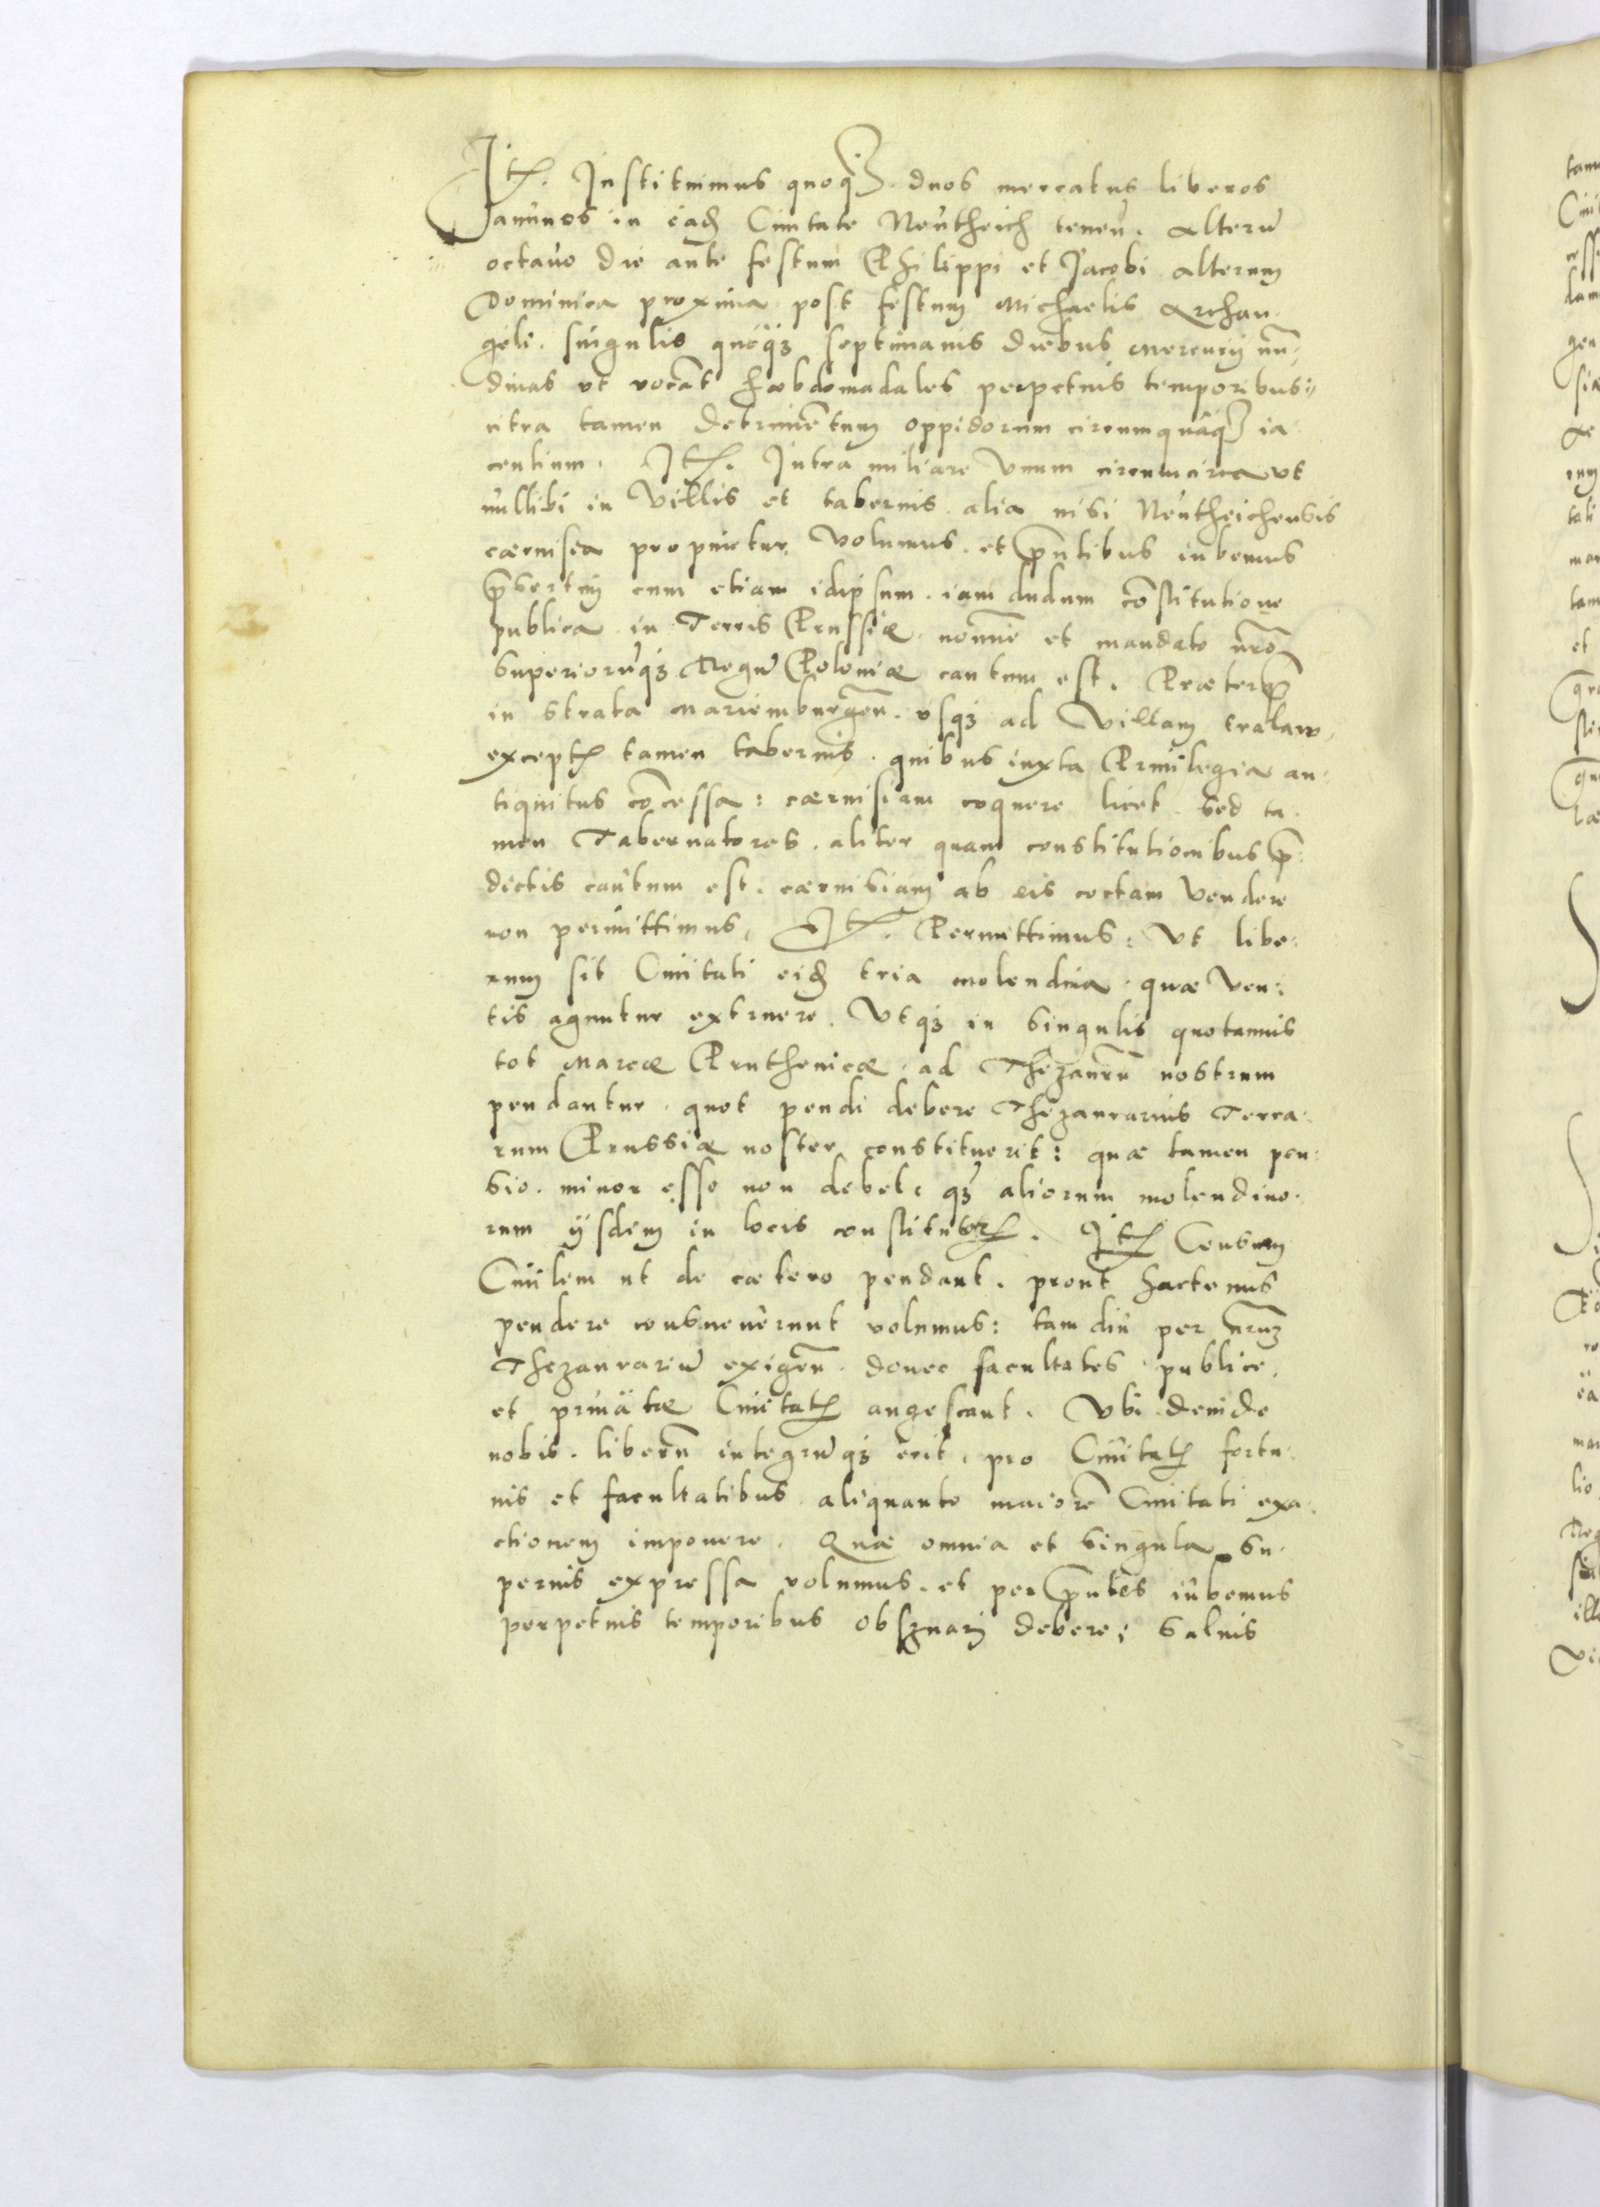 Itē. Instituimus quoqꝫ duos mercatus liberos
annuos in eadē Ciuitate Neutheich tenen̄. Alterū
octauo die ante festum Philippi et Jacobi alterum
Dominica proxima post festum Michaelis Archan:
geli. singulis quoqꝫ septimanis diebus Mercurij nū:
dinas vt vocāt Hæbdomadales perpetuis temporibus:
citra tamen detrimētum oppidorum circumquāqꝫ ia
centium. Itē. Intra miliare vnum circumcirca vt
nullibi in Villis et tabernis alia nisi Neutheichensis
cæruisia propinetur volumus. et p̄ntibus iubemus
p̄sertim cum etiam idipsum iam dudum cōstitutione
publica in Terris Prussiæ nomine et mandato nr̄o
Superiorūqꝫ Regū Poloniæ cautum est. Præterqꝫ
in strata Mariemburgen̄. vsqꝫ ad Villam tralaw
exceptꝭ tamen tabernis. quibus iuxta Priuilegia an:
tiquitus cōcessa: cæruisiam coquere licet. sed ta
men Tabernatores. aliter quam constitutionibus p̄:
dictis cautum est. cæruisiam ab eis coctam vendere
non permittimus. Itē. Permittimus: Vt libe:
rum sit Ciuitati eidē tria molendina. quæ ven:
tis aguntur extruere. Vtqꝫ in singulis quotannis
tot Marcæ Pruthenicæ ad Thezaurū nostrum
pendantur. quot pendi debere Thezaurarius Terra:
rum Prussiæ noster constituerit: quæ tamen pen:
sio. minor esse non debet. qꝫ aliorum molendino.
rum ijsdem in locis constitutorꝝ. Itē Censum
Ciuilem vt de cætero pendant. prout hactenus
pendere consueuerunt volumus: tam diu per nr̄um
Thezaurariū exigen̄. donec facultates publice.
et priuatæ Ciuitatꝭ augescant. Vbi deinde
nobis. liberū integrūqꝫ erit. pro Ciuitatꝭ fortu:
nis et facultatibus aliquanto maiorē Ciuitati exa:
ctionem imponere. Quæ omnia et singula su:
perius expressa volumus. et per p̄ntes iubemus
perpetuis temporibus obseruari debere; Saluis